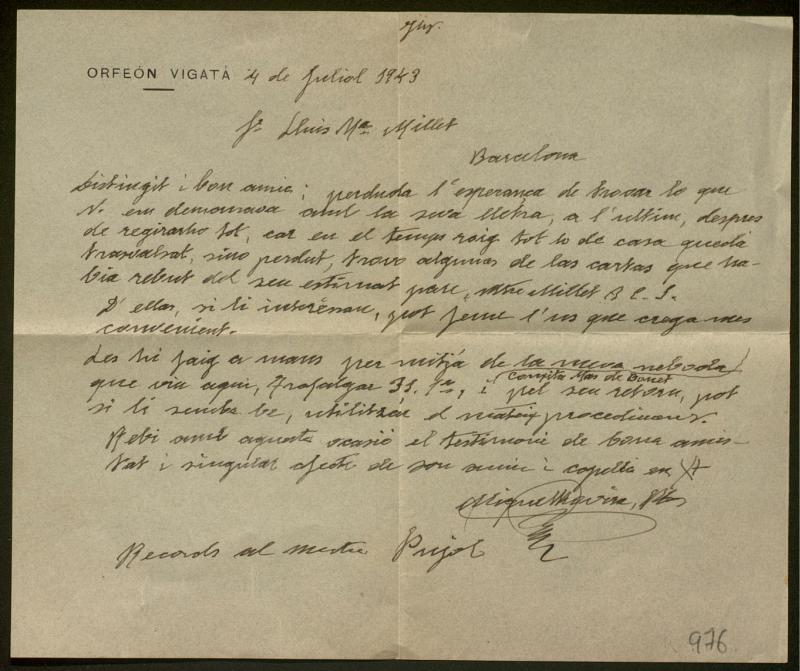 ORFEÓN VIGATÁ 4 de Juliol 1943
Sr. Lluis Mª. Millet
Barcelona
Distingit i bon amic; perduda l'esperança de trovar lo que
V. em demanava amb la seva lletra, a l'ultim, despres
de regirarho tot, car en el temps roig tot lo de casa quedá
trasvalsat, sino perdut, trovo algunas de las cartas que ha-
bia rebut del seu estimat pare, Mtre Millet
D'ellas, si li interésan, pot ferne l'us que crega mes
convenient.
Les hi faig a mans per mitjá de la meva neboda
Conxita Mas de Bonet
que viu aqui, Trafalgar 31. 1er, i pel seu retorn, pot
si li sembla be, utilitzár el mateix procediment.
Rebi amb aquesta ocasió el testimoni de bona amis-
tat i singular afecte de son amic i capellá en X
Miquel Rovira, Pbre
Records al mestre Pujol
976